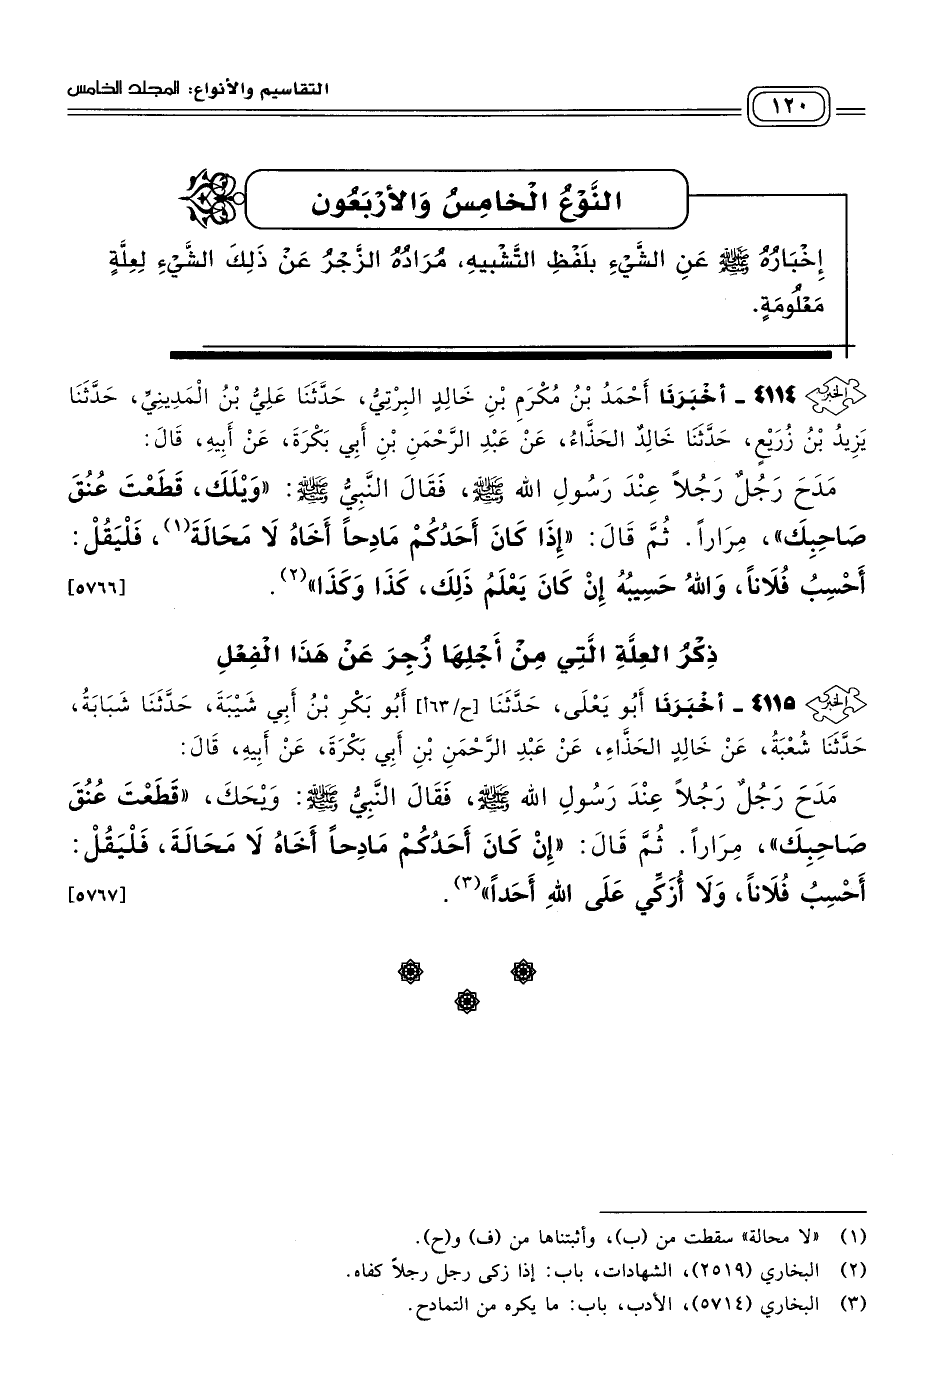 التقاسيم والأنواع: المجلد الخامس
١٢٠
النَّوْعُ الْخَامِسُ وَالأَرْبَعُون
إِخْبَارُهُ ﷺ عَنِ الشَّيْءِ بِلَفْظِ التَّشْبِيهِ، مُرَادُهُ الزَّجْرُ عَنْ ذَلِكَ الشَّيْءِ لِعِلَّةٍ
مَعْلُومَةٍ.
٤١١٤ - أَخْبَرَنَا أَحْمَدُ بْنُ مُكْرَمِ بْنِ خَالِدٍ البِرْتِيُّ، حَدَّثَنَا عَلِيُّ بْنُ الْمَدِينِيِّ، حَدَّثَنَا
يَزِيدُ بْنُ زُرَيْعٍ، حَدَّثَنَا خَالِدٌ الحَذَّاءُ، عَنْ عَبْدِ الرَّحْمَنِ بْنِ أَبِي بَكْرَةَ، عَنْ أَبِيهِ، قَالَ:
مَدَحَ رَجُلٌ رَجُلاً عِنْدَ رَسُولِ الله ﷺ، فَقَالَ النَّبِيُّ ﷺ: «وَيْلَكَ، قَطَعْتَ عُنُقَ
صَاحِبِكَ»، مِرَاراً. ثُمَّ قَالَ: «إِذَا كَانَ أَحَدُكُمْ مَادِحاً أَخَاهُ لَا مَحَالَةَ(١)، فَلْيَقُلْ:
أَحْسِبُ فُلَاناً، وَاللهُ حَسِيبُهُ إِنْ كَانَ يَعْلَمُ ذَلِكَ، كَذَا وَكَذَا»(٢). [٥٧٦٦]
ذِكْرُ العِلَّةِ الَّتِي مِنْ أَجْلِهَا زُجِرَ عَنْ هَذَا الْفِعْلِ
٤١١٥ - أَخْبَرَنَا أَبُو يَعْلَى، حَدَّثَنَا [ح/٦٣أ] أَبُو بَكْرِ بْنُ أَبِي شَيْبَةَ، حَدَّثَنَا شَبَابَةُ،
حَدَّثَنَا شُعْبَةُ، عَنْ خَالِدٍ الحَذَّاءِ، عَنْ عَبْدِ الرَّحْمَنِ بْنِ أَبِي بَكْرَةَ، عَنْ أَبِيهِ، قَالَ:
مَدَحَ رَجُلٌ رَجُلاً عِنْدَ رَسُولِ الله ﷺ، فَقَالَ النَّبِيُّ ﷺ: وَيْحَكَ، «قَطَعْتَ عُنُقَ
صَاحِبِكَ»، مِرَاراً. ثُمَّ قَالَ: «إِنْ كَانَ أَحَدُكُمْ مَادِحاً أَخَاهُ لَا مَحَالَةَ، فَلْيَقُلْ:
أَحْسِبُ فُلَاناً، وَلَا أُزَكِّي عَلَى اللهِ أَحَداً»(٣). [٥٧٦٧]
(١) «لا محالة» سقطت من (ب)، وأثبتناها من (ف) و(ح).
(٢) البخاري (٢٥١٩)، الشهادات، باب: إذا زكى رجل رجلاً كفاه.
(٣) البخاري (٥٧١٤)، الأدب، باب: ما يكره من التمادح.